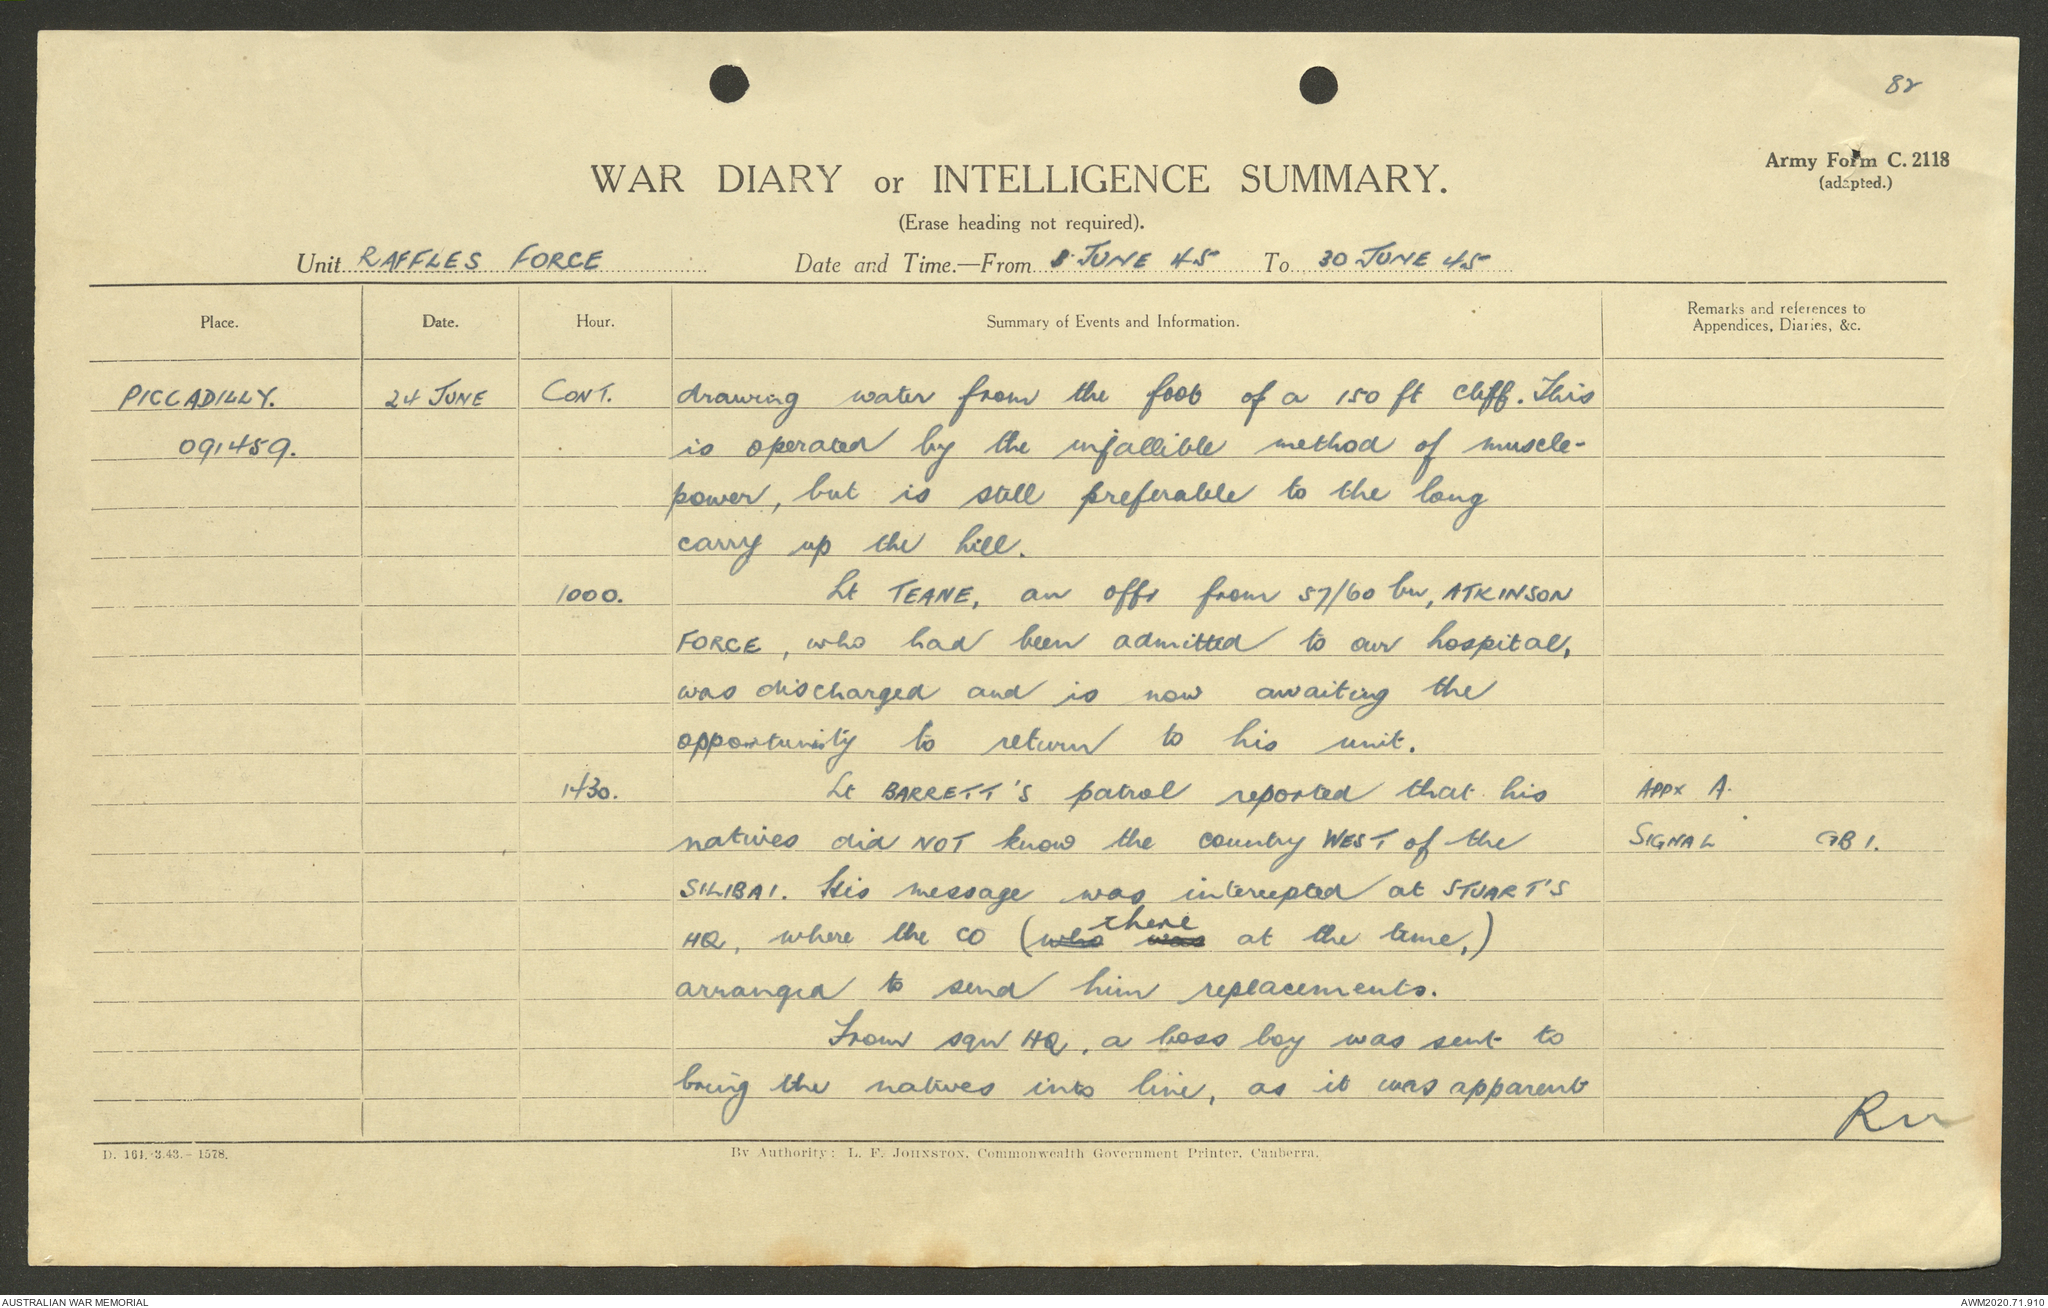 82
Army Form C. 2118
(adapted.)
WAR DIARY or INTELLIGENCE SUMMARY.
(Erase heading not required).
Unit RAFFLES FORCE Date and Time.—From 8 JUNE 45 To 30 JUNE 45
Place. Date. Hour. Summary of Events and Information. Remarks and references to
Appendices, Diaries, &c.
PICCADILLY. 24 JUNE CONT. drawing water from the foot of a 150 ft cliff. This
091459. is operated by the infallible method of muscle-
power, but is still preferable to the long
carry up the hill.
1000. Lt TEANE, an offr from 57/60 bn, ATKINSON
FORCE, who had been admitted to our hospital,
was discharged and is now awaiting the
opportunity to return to his unit.
1430. Lt BARRETT'S patrol reported that his APPX A.
natives did NOT know the country WEST of the SIGNAL GB 1.
SILIBAI. His message was intercepted at STUART'S
there
HQ, where the CO (who was at the time,)
arranged to send him replacements.
From sqn HQ, a boss boy was sent to
bring the natives into line, as it was apparent
D. 161. 3.43. - 1578. By Authority: L. F. JOHNSTON, Commonwealth Government Printer, Canberra.
AUSTRALIAN WAR MEMORIAL AWM2020.71.910